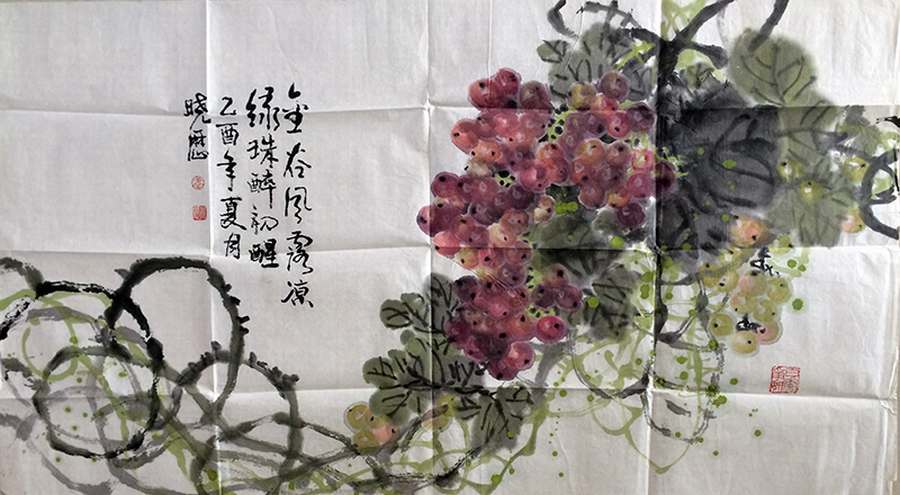 金谷风露凉
绿珠醉初醒
乙酉年夏月
晓